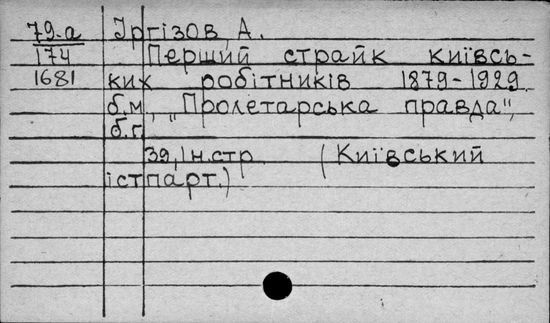 79.а Іргізов, А.
174 Перший страйк київсь-
1681 ких робітників 1879-1929.
б.м., "Пролетарська правда",
б.г.
39, Ін.стр. (Київський
істпарт.)